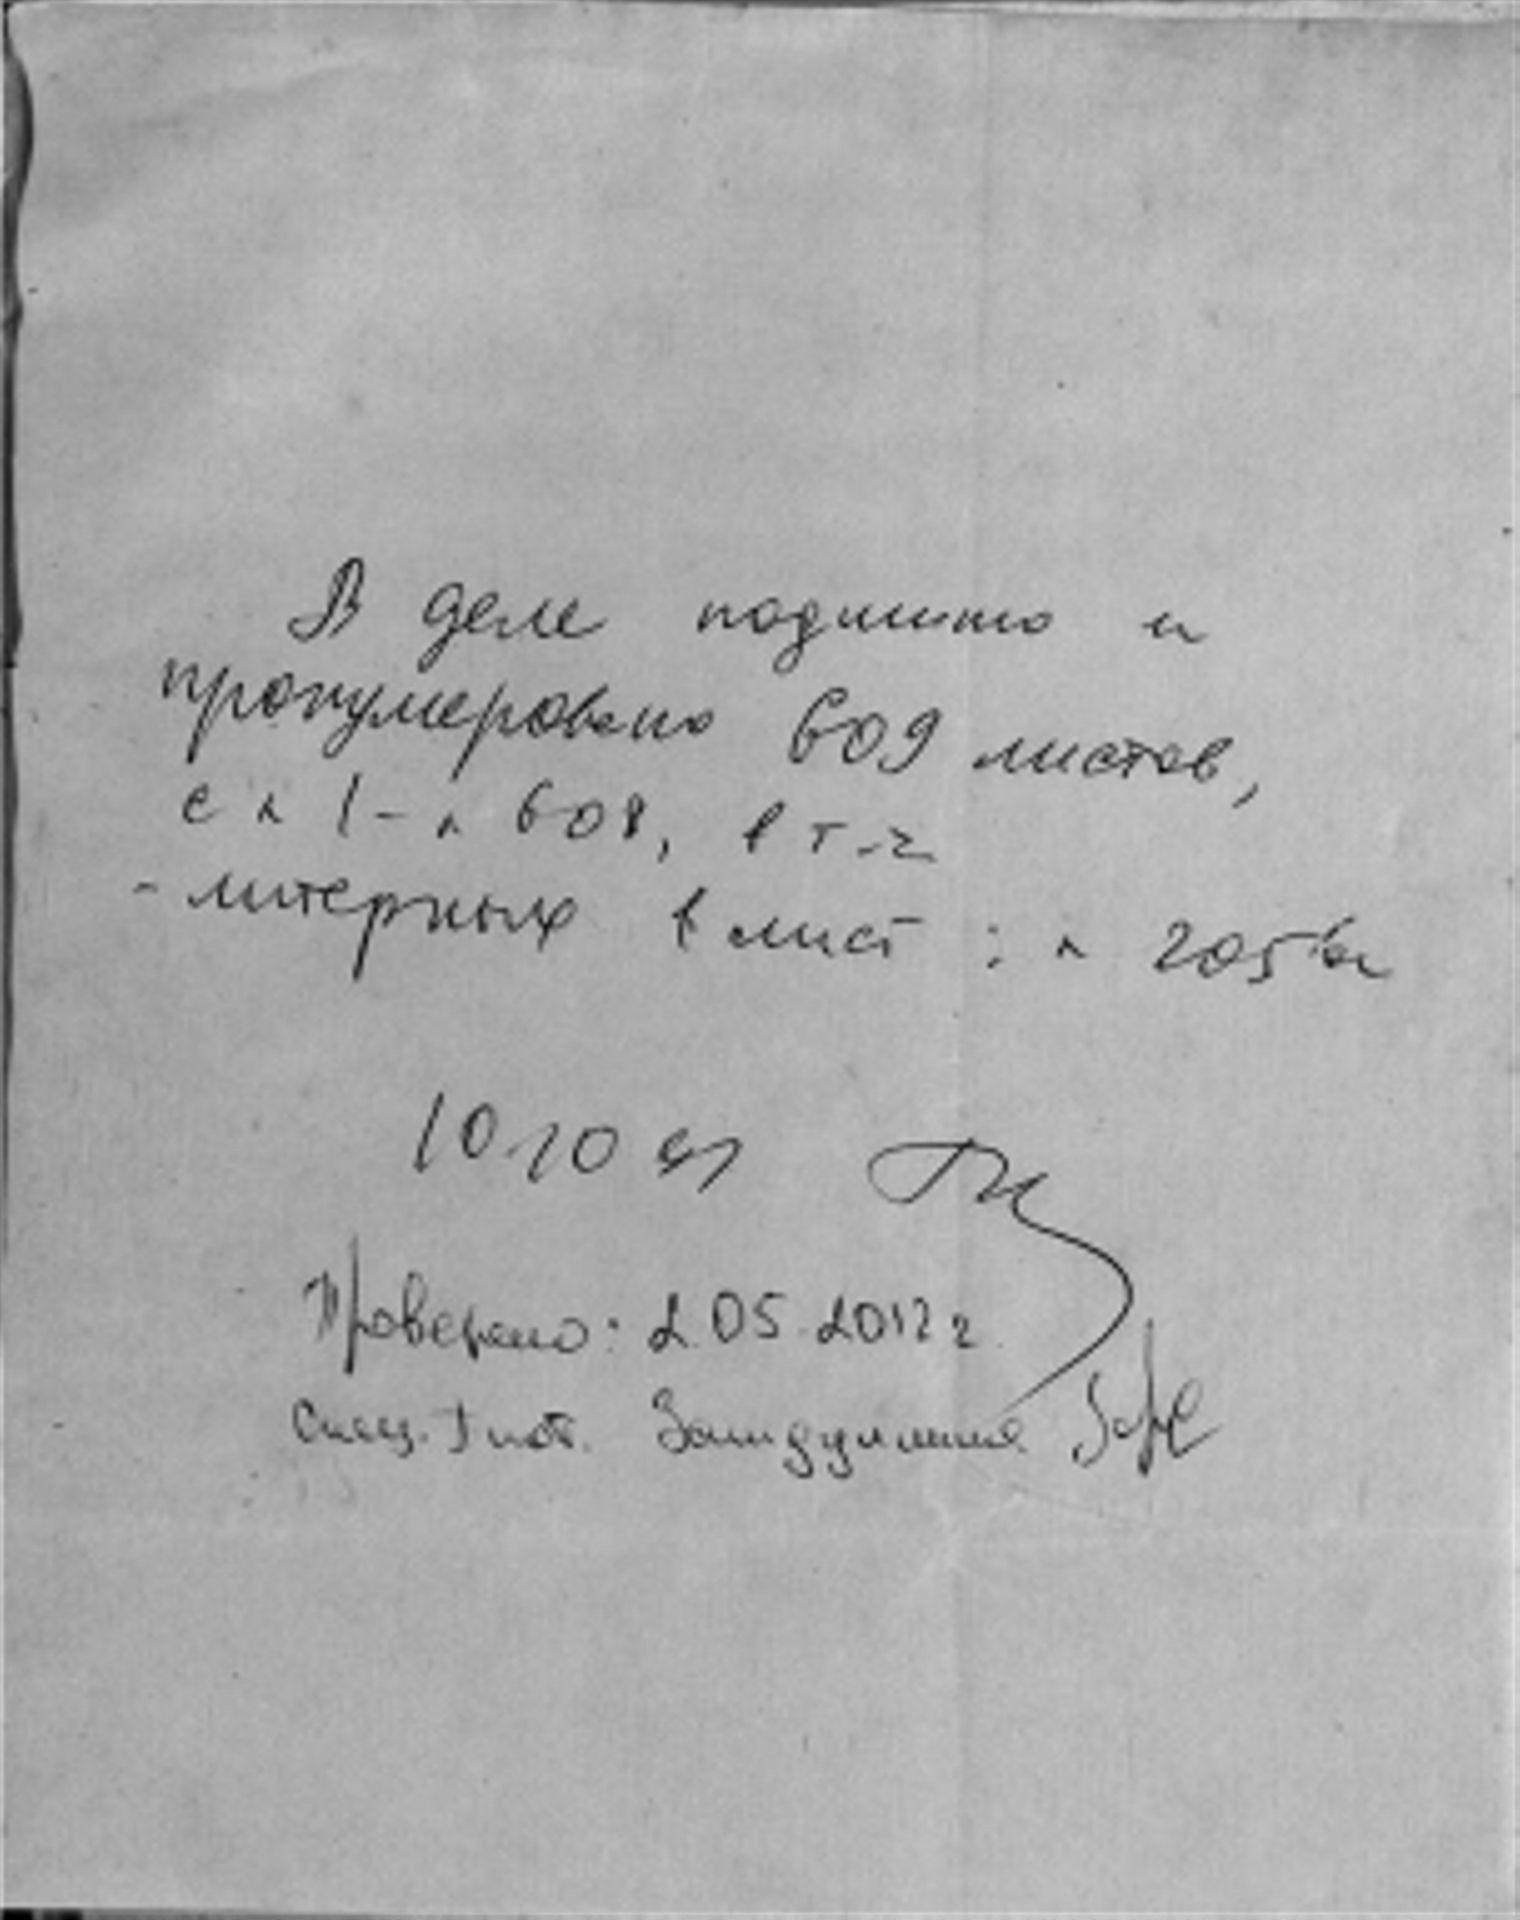 В деле подшито и
пронумеровано 609 листов,
с л 1 - л 608, в т.ч
- литерных 1 лист : л 205а
10.10.91
Проверено: 2.05.2012 г.
Спец. I кат.